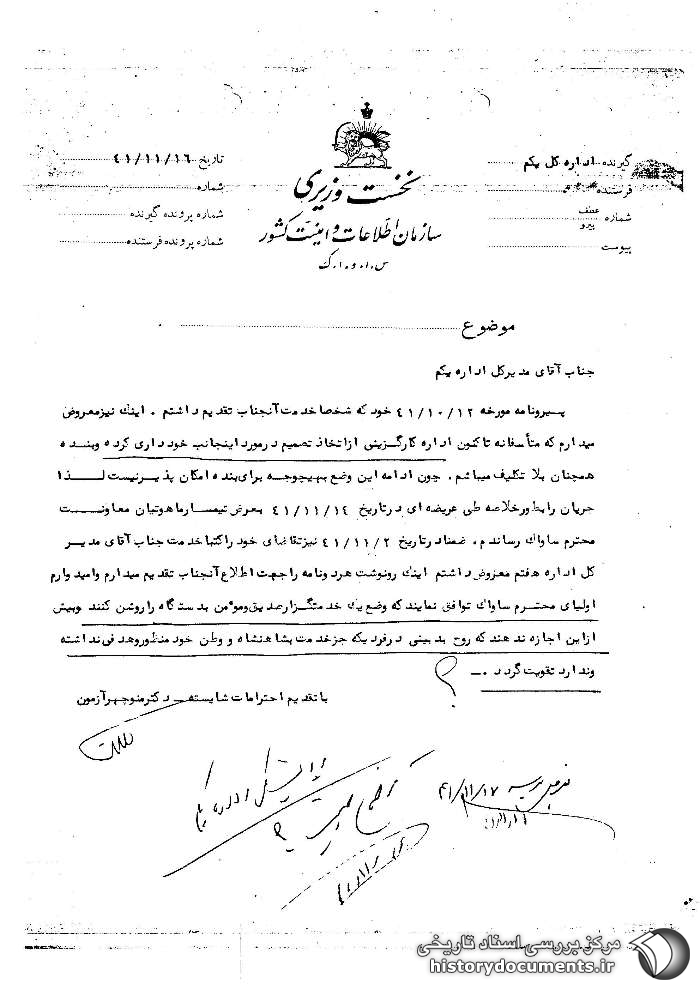 گیرنده اداره کل یکم
فرستنده
شماره عطف
پیرو
پیوست
نخست وزیری
سازمان اطلاعات و امنیت کشور
س.ا.و.ا.ک
تاریخ ۴۱/۱۱/۱۶
شماره
شماره پرونده گیرنده
شماره پرونده فرستنده
موضوع
جناب آقای مدیرکل اداره یکم
پیرونامه مورخه ۴۱/۱۰/۱۲ خود که شخصا خدمت آنجناب تقدیم داشتم . اینك نیز معروض
میدارم که متأسفانه تاکنون اداره کارگزینی از اتخاذ تصمیم در مورد اینجانب خودداری کرده وبنده
همچنان بلا تکلیف میباشم . چون ادامه این وضع بهیچوجه برای بنده امکان پذیر نیست لذا
جریان را بطور خلاصه طی عریضه ای در تاریخ ۴۱/۱۱/۱۴ بعرض تیمسار ماهوتیان معاونت
محترم ساواك رساندم . ضمنا در تاریخ ۴۱/۱۱/۲ نیز تقاضای خود را کتبا خدمت جناب آقای مدیر
کل اداره هفتم معروض داشتم اینك رونوشت هر دو نامه را جهت اطلاع آنجناب تقدیم میدارم وامیدوارم
اولیای محترم ساواك توافق نمایند که وضع یك خدمتگزار صدیق ومومن بدستگاه را روشن کنند وبیش
از این اجازه ندهند که روح بدبینی در فردیکه جز خدمت بشاهنشاه و وطن خود منظور وهدفی نداشته
وندارد تقویت گردد .ــ
؟
با تقدیم احترامات شایسته ــ دکتر منوچهر آزمون
۴۱/۱۱/۱۷
مرکز بررسی اسناد تاریخی
historydocuments.ir